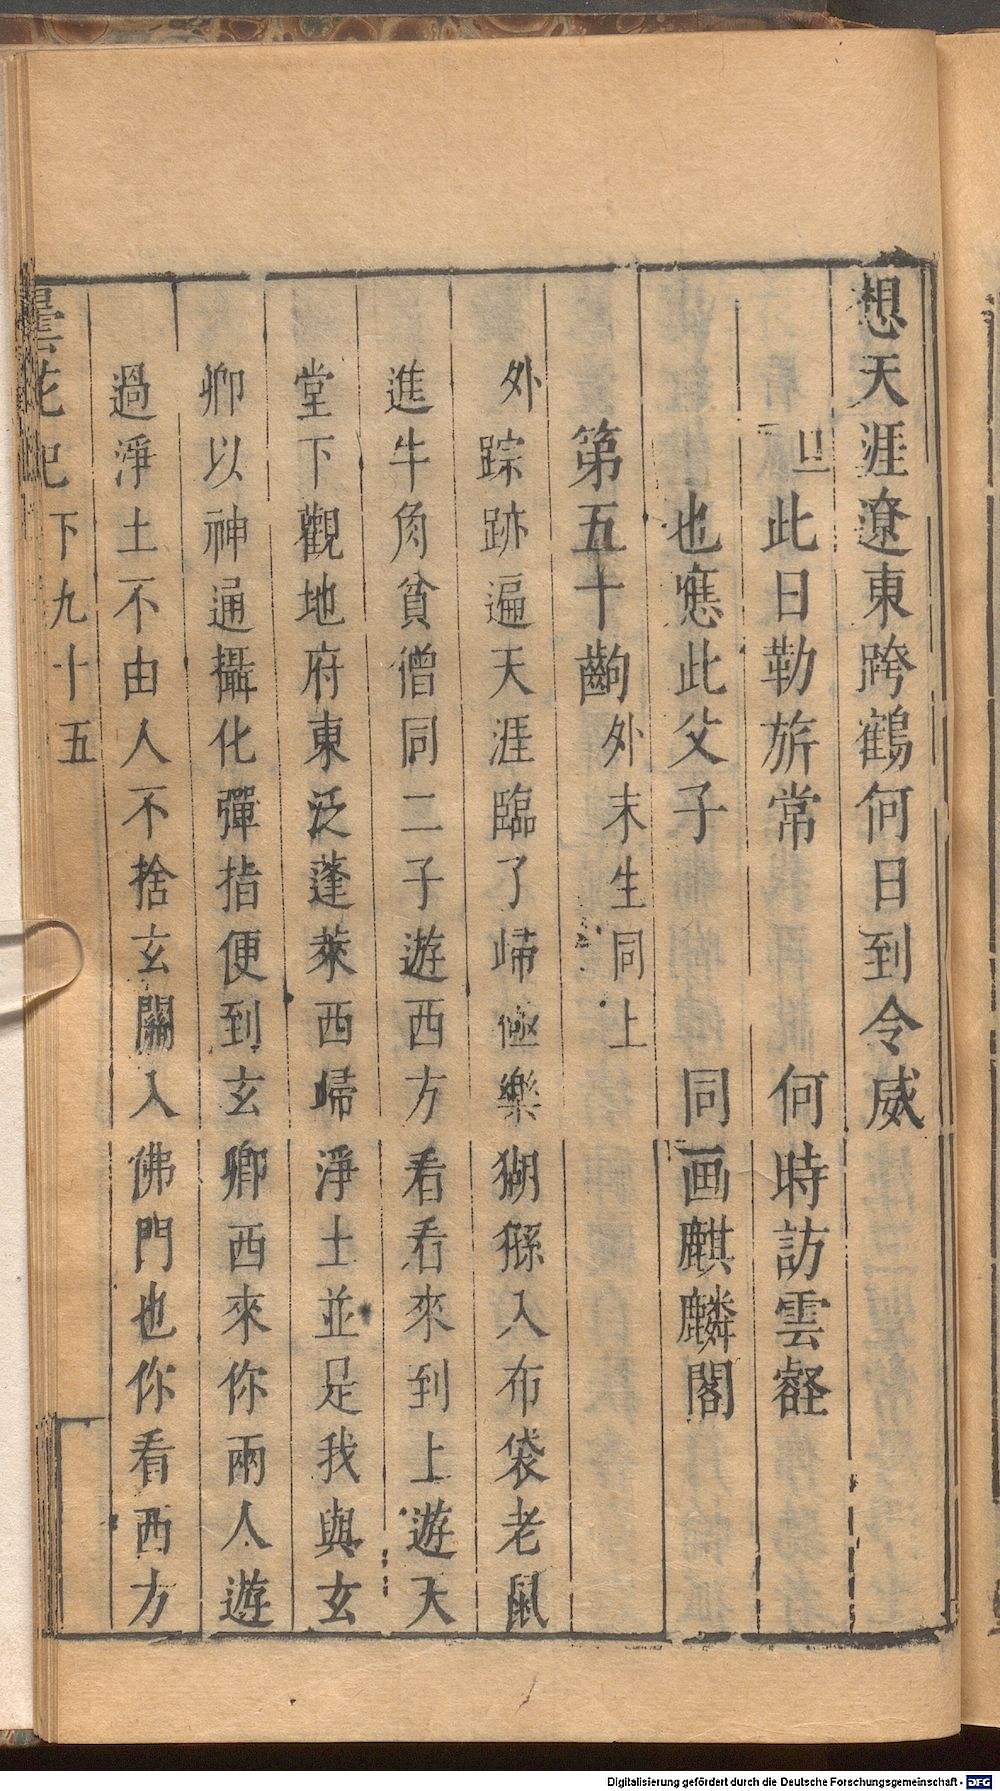 想天涯遼東跨鶴何日到令威
旦此日勒旂常　何時訪雲壑
也應此父子　同画麒麟閣
第五十齣　外末生同上
外　踪跡遍天涯臨了歸極樂猢猻入布袋老鼠
進牛角貧僧同二子遊西方看看來到上遊天
堂下觀地府東泛蓬萊西歸淨土並是我與玄
卿以神通攝化彈指便到玄卿西來你兩人遊
過淨土不由人不捨玄關入佛門也你看西方
曇花記　下九十五
Digitalisierung gefördert durch die Deutsche Forschungsgemeinschaft - DFG